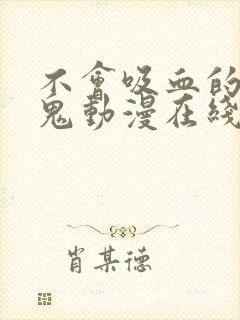 不會吸血的
鬼動漫在綫
肖某德